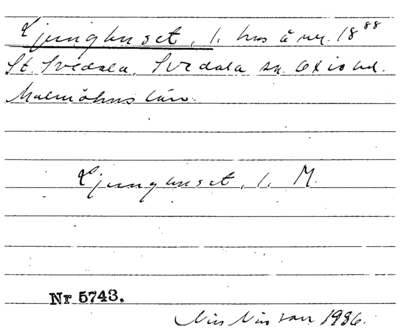 Ljunghuset, l. hus å nr. 18⁸⁸
St. Svedala, Svedala sn. Oxie hd.
Malmöhus län.
Ljunghuset, l. M.
Nr 5743.
Nils Nilsson 1986.